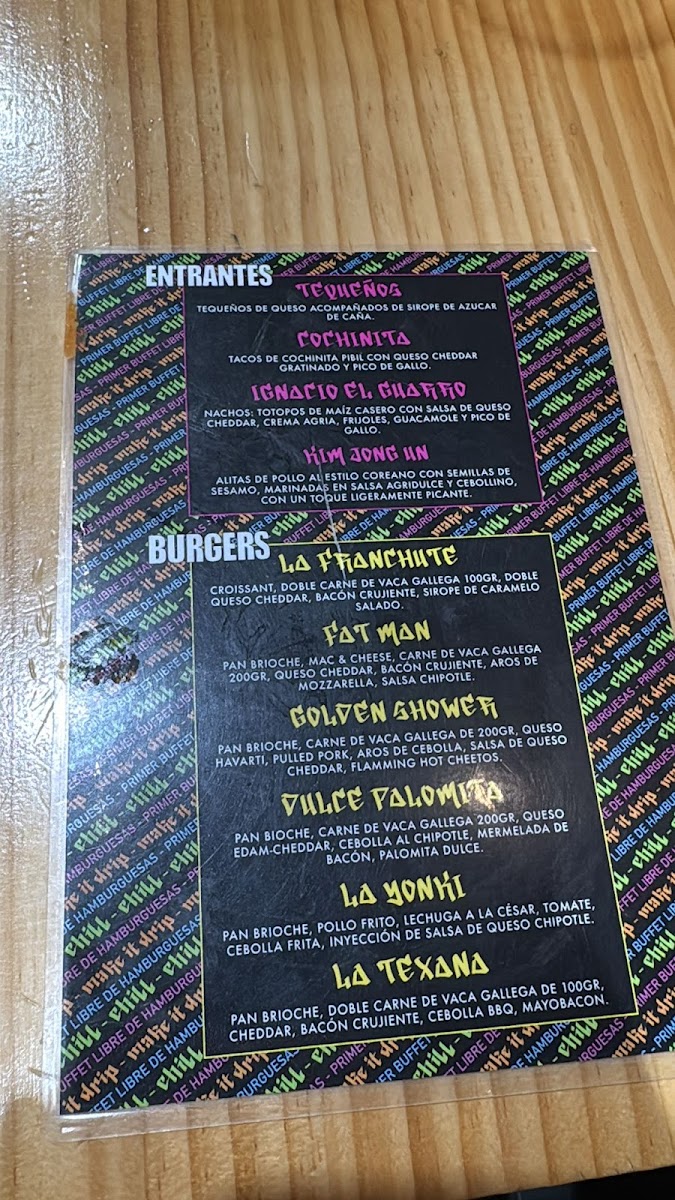 ENTRANTES
TEQUEÑOS
TEQUEÑOS DE QUESO ACOMPAÑADOS DE SIROPE DE AZUCAR
DE CAÑA.
COCHINITA
TACOS DE COCHINITA PIBIL CON QUESO CHEDDAR
GRATINADO Y PICO DE GALLO.
IGNACIO EL GUARRO
NACHOS: TOTOPOS DE MAÍZ CASERO CON SALSA DE QUESO
CHEDDAR, CREMA AGRIA, FRIJOLES, GUACAMOLE Y PICO DE
GALLO.
KIM JONG UN
ALITAS DE POLLO AL ESTILO COREANO CON SEMILLAS DE
SESAMO, MARINADAS EN SALSA AGRIDULCE Y CEBOLLINO,
CON UN TOQUE LIGERAMENTE PICANTE.
BURGERS
LA FRANCHUTE
CROISSANT, DOBLE CARNE DE VACA GALLEGA 100GR, DOBLE
QUESO CHEDDAR, BACÓN CRUJIENTE, SIROPE DE CARAMELO
SALADO.
FAT MAN
PAN BRIOCHE, MAC & CHEESE, CARNE DE VACA GALLEGA
200GR, QUESO CHEDDAR, BACÓN CRUJIENTE, AROS DE
MOZZARELLA, SALSA CHIPOTLE.
GOLDEN SHOWER
PAN BRIOCHE, CARNE DE VACA GALLEGA DE 200GR, QUESO
HAVARTI, PULLED PORK, AROS DE CEBOLLA, SALSA DE QUESO
CHEDDAR, FLAMMING HOT CHEETOS.
DULCE PALOMITA
PAN BIOCHE, CARNE DE VACA GALLEGA 200GR, QUESO
EDAM-CHEDDAR, CEBOLLA AL CHIPOTLE, MERMELADA DE
BACÓN, PALOMITA DULCE.
LA YONKI
PAN BRIOCHE, POLLO FRITO, LECHUGA A LA CÉSAR, TOMATE,
CEBOLLA FRITA, INYECCIÓN DE SALSA DE QUESO CHIPOTLE.
LA TEXANA
PAN BRIOCHE, DOBLE CARNE DE VACA GALLEGA DE 100GR,
CHEDDAR, BACÓN CRUJIENTE, CEBOLLA BBQ, MAYOBACON.
PRIMER BUFFET LIBRE DE HAMBURGUESAS
chill - make it drip